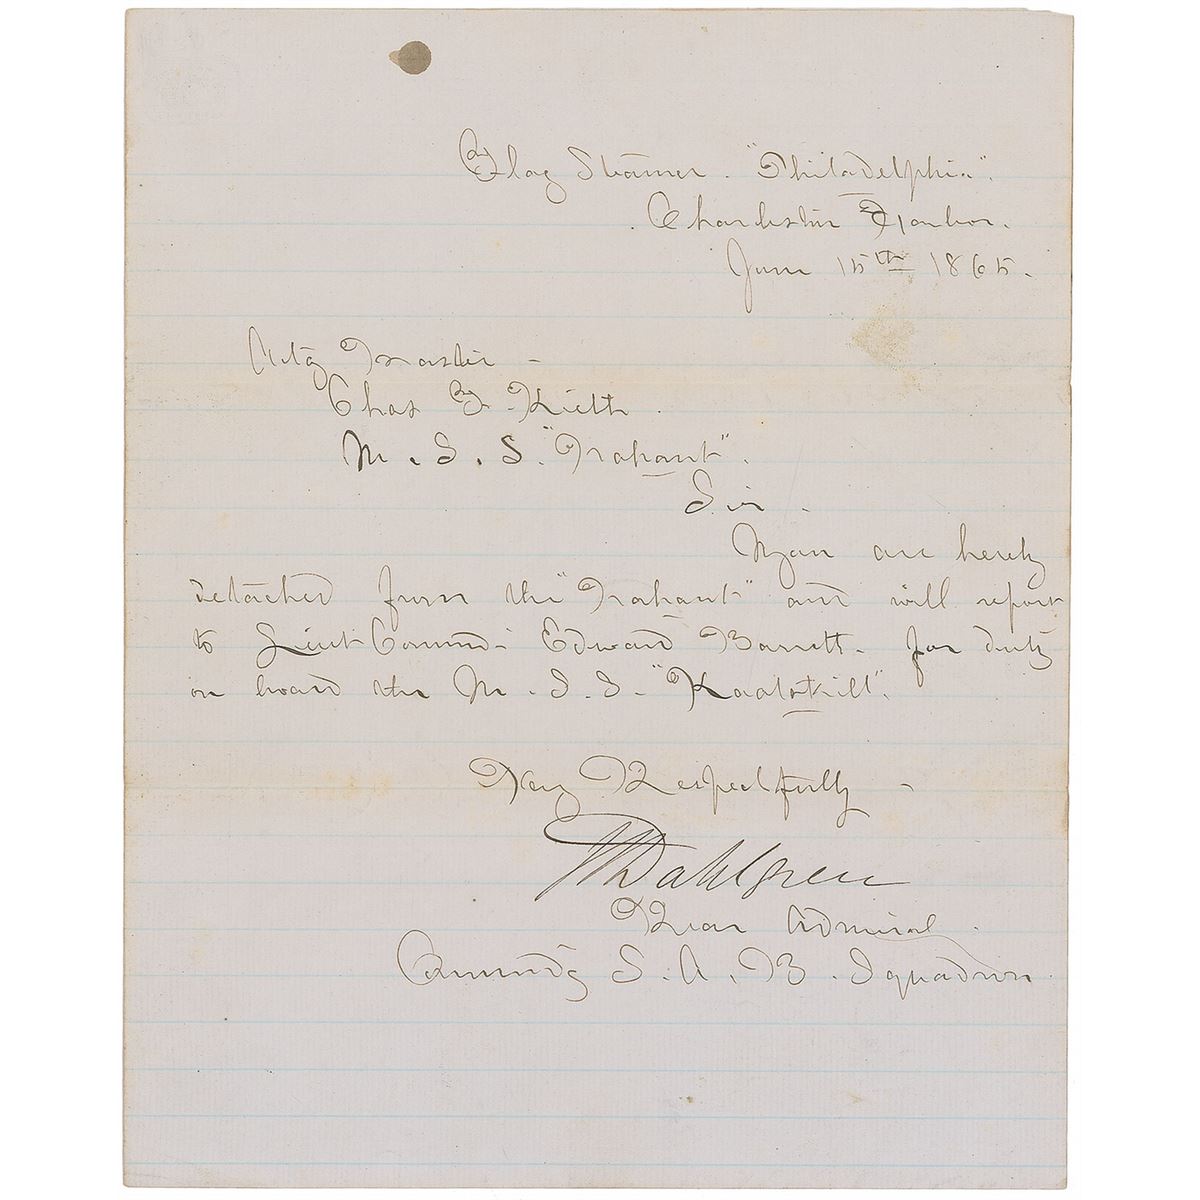 Flag Steamer. "Philadelphia".
Charleston Harbor.
June 15th 1865.
Actg Master -
Chas F. Kieth.
M. S. S. "Nahant".
Sir.
You are hereby
detached from the "Nahant" and will report
to Lieut Commd- Edward Barrett. for duty
on board the M. S. S. "Kaatskill".
Very Respectfully -
JADahlgren
Rear Admiral.
Commdg S. A. B. Squadron.